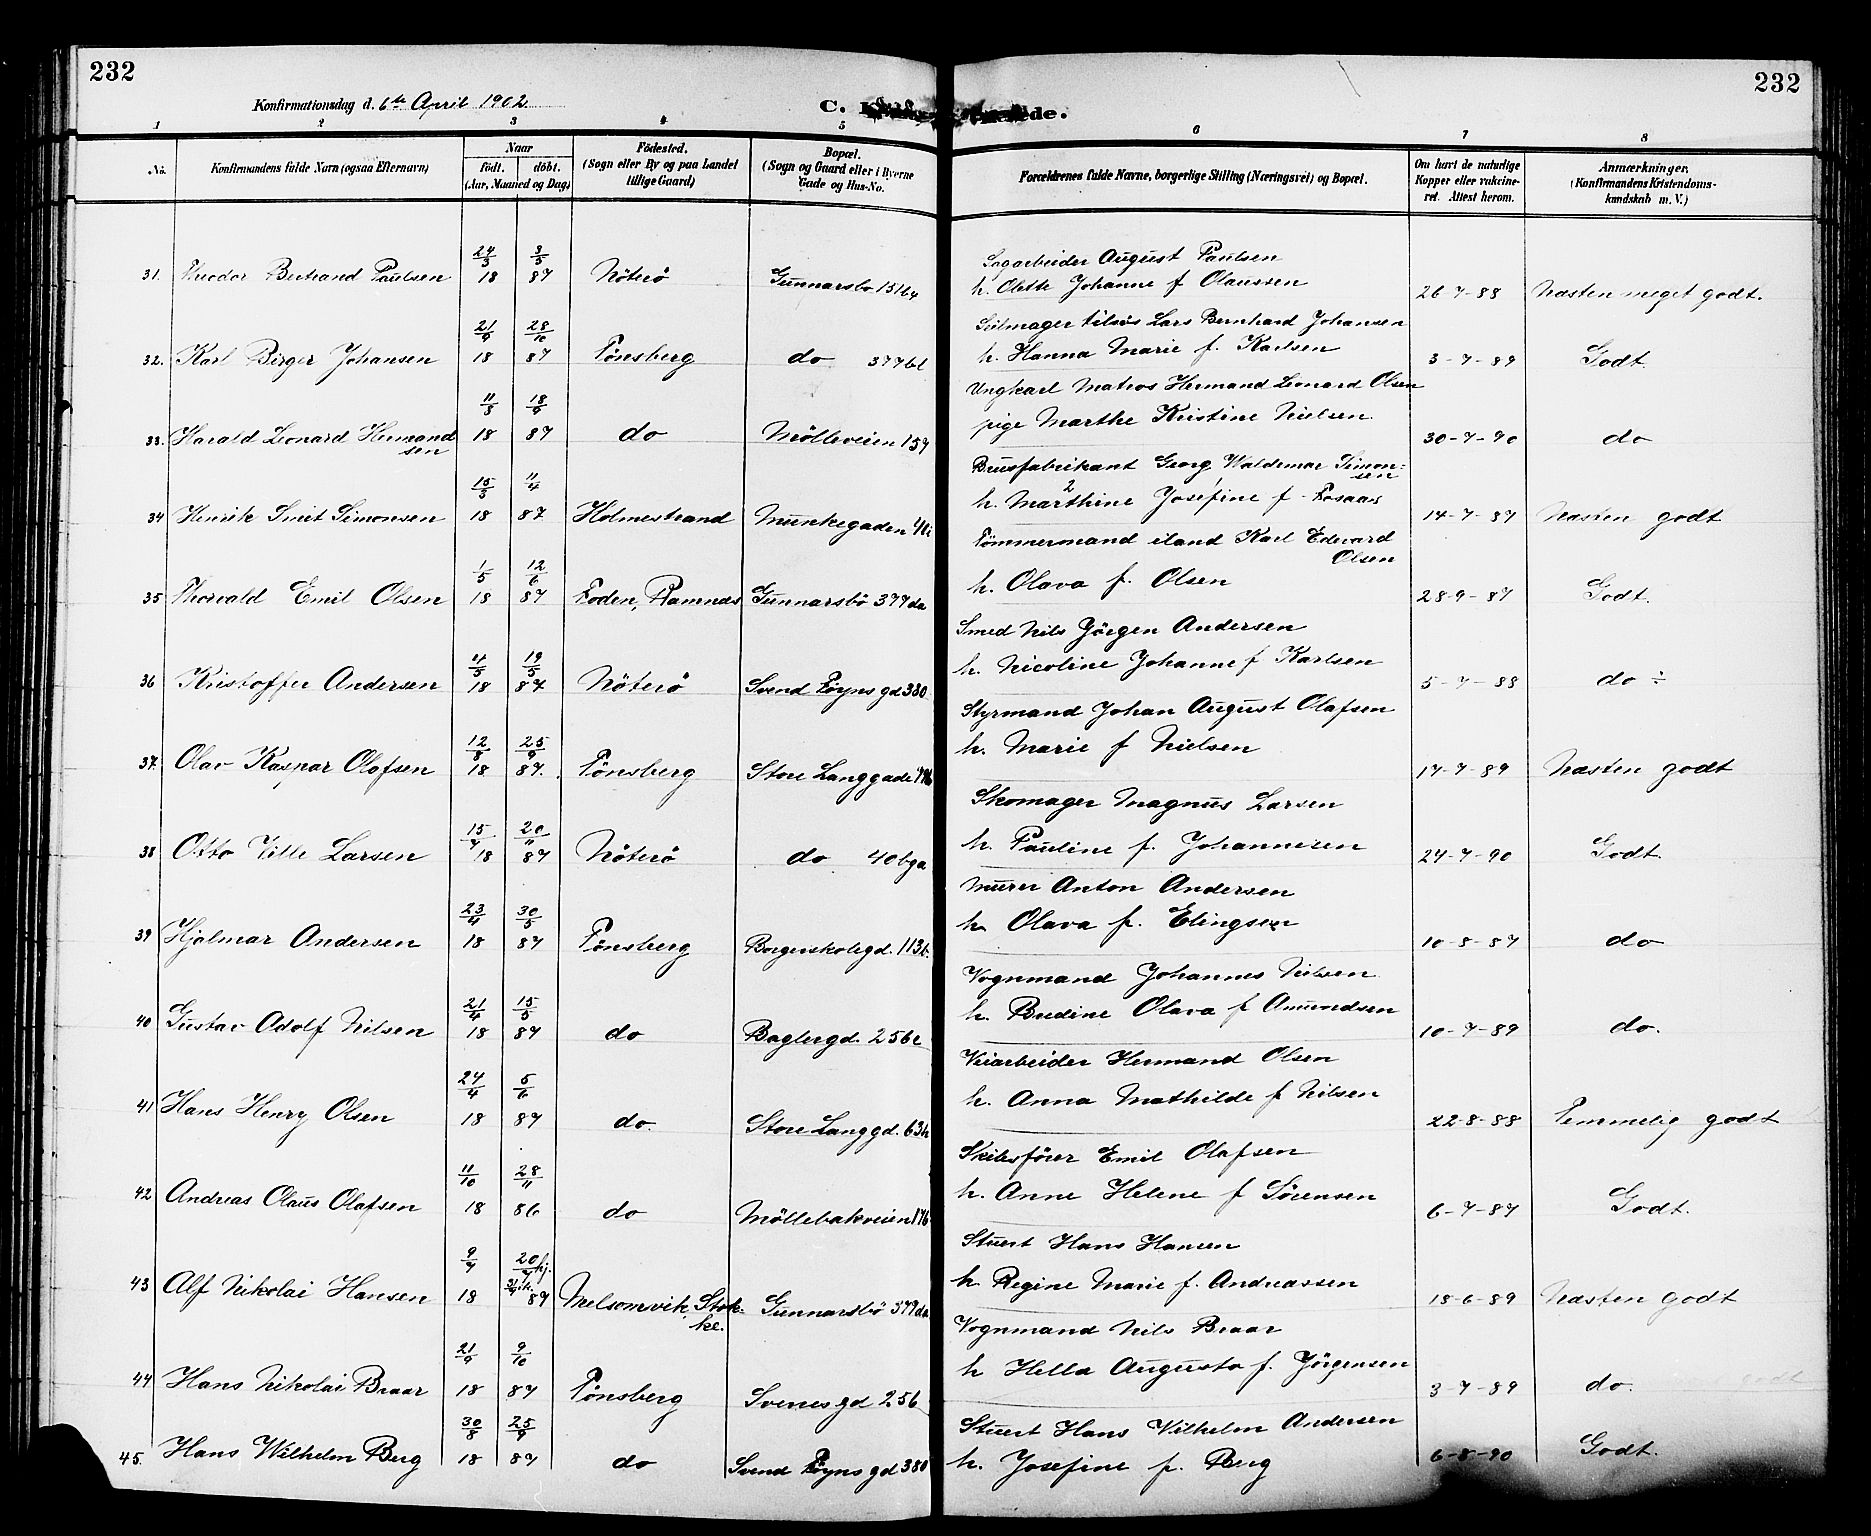 232
232
Konfirmationsdag d. 6te April 1902
C. K
de.
1 2 3 4 5 6 7 8
No. Konfirmandens fulde Navn (ogsaa Efternavn) Naar födt. döbt. (Aar, Maaned og Dag) Födested. (Sogn eller By og paa Landet tillige Gaard) Bopæl. (Sogn og Gaard eller i Byerne Gade og Hus-No. Forældrenes fulde Navne, borgerlige Stilling (Næringsvei) og Bopæl. Om havt de naturlige Kopper eller vakcineret. Attest herom. Anmærkninger. (Konfirmandens Kristendomskundskab m. V.)
24/3 3/5 Sagarbeider August Paulsen
31. Theodor Bertrand Paulsen 18 87 Nöterö Gunnarsbo 151b4 h. Olette Johanne f Olaussen 26-7-88 Næsten meget godt.
21/9 28/10 Seilmager tilsös Lars Bernhard Johansen
32. Karl Birger Johansen 18 87 Tönsberg do 377bl h. Hanna Marie f. Karlsen 3-7-89 Godt.
11/8 18/9 Ungkarl Matros Hermand Leonard Olsen
33. Harald Leonard Hermandsen 18 87 do Mölleveien 157 pige Marthe Kristine Nielsen 30-7-90 do
15/3 11/4 Brusfabrikant Georg Waldemar Simonsen
34 Henrik Smit Simonsen 18 87 Holmestrand Munkegaden h. Marthine Josefine f. 14-7-87 Næsten godt
1/5 12/6 Tömmermand iland Karl Edvard Olsen
35 Thorvald Emil Olsen 18 87 Foden, Ramnæs Gunnarsbö 377da h. Olava f. Olsen 28-9-87 Godt.
4/5 19/5 Smed Nils Jörgen Andersen
36 Kristoffer Andersen 18 87 Nöterö Svend Föyns gd 380 h. Nicoline Johanne f Karlsen 5-7-88 do ÷
12/8 25/9 Styrmand Johan August Olafsen
37. Olav Kaspar Olafsen 18 87. Tönsberg Store Langgade h. Marie f Nielsen 17-7-89 Næsten godt
15/7 20/11 Skomager Magnus Larsen
38 Otto Ville Larsen 18 87 Nöterö do 40bga h. Pauline f. Johannesen 24-7-90 Godt.
23/4 30/5 Murer Anton Andersen
39 Hjalmar Andersen 18 87 Tönsberg Borgerskolegd. 113b. h. Olava f. Elingsen 10-8-87 do
21/4 15/5 Vognmand Johannes Nilsen
40 Gustav Adolf Nilsen 18 87 do Baglergd. 256c h. Bredine Olava f Amundsen 10-7-89 do.
24/4 5/6 Veiarbeider Hermand Olsen
41 Hans Henry Olsen 18 87 do. Store Langgd. 63h h. Anna Mathilde f Nilsen 22-8-88 Temmelig godt
11/10 28/11 Skibsförer Emil Olafsen
42 Andreas Olaus Olafsen 18 86 do Möllebakveien 176 h. Anne Helene f Sörensen 6-7-87 Godt.
9/7 20/7 hj. Stuert Hans Hansen
43 Alf Nikolai Hansen 18 87 Melsomvik, Stokke. Gunnarsbö 377da h. Regine Marie f. Andreassen 18-6-89 Næsten godt
21/9 9/10 Vognmand Nils Braar
44 Hans Nikolai Braar 18 87 Tönsberg Svenes gd 256 h Hella Augusta f. Jörgensen 3-7-89 do.
30/8 25/9 Stuert Hans Wilhelm Andersen
45. Hans Wilhelm Berg 18 87 do Svend Föyns gd 380 h. Josefine f. Berg 6-8-90 Godt.